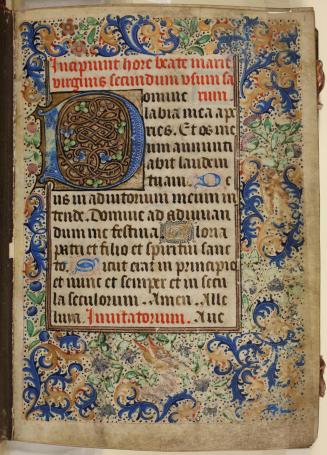 Incipiunt hore beate marie
virginis secundum usum sa
Domine rum
labia mea ape
ries. Et os me
um annunti
abit laudem
tuam. De
us in adiutorium meum in
tende. Domine ad adiuuan
dum me festina. Gloria
patri et filio et spiritui sanc
to. Sicut erat in principio
et nunc et semper et in secu
la seculorum. Amen. Alle
luia. Inuitatorium. Aue